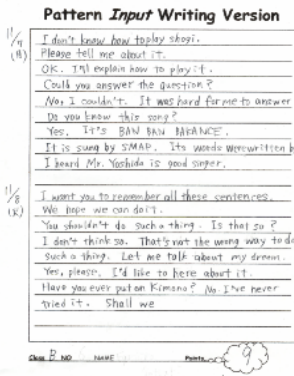 Pattern Input Writing Version
11/7
(月)
I don't know how to play shogi.
Please tell me about it.
OK. I'll explain how to play it.
Could you answer the question?
No, I couldn't. It was hard for me to answer
Do you know this song?
Yes. It's BAN BAN BAKANCE.
It is sung by SMAP. Its words were written b
I heard Mr. Yoshida is good singer.
11/8
(火)
I want you to remember all these sentences.
We hope we can do it.
You shouldn't do such a thing. Is that so?
I don't think so. That's not the wrong way to do
such a thing. Let me talk about my dream.
Yes, please. I'd like to here about it.
Have you ever put on Kimono? No. I've never
tried it. Shall we
Class B NO NAME Points 9